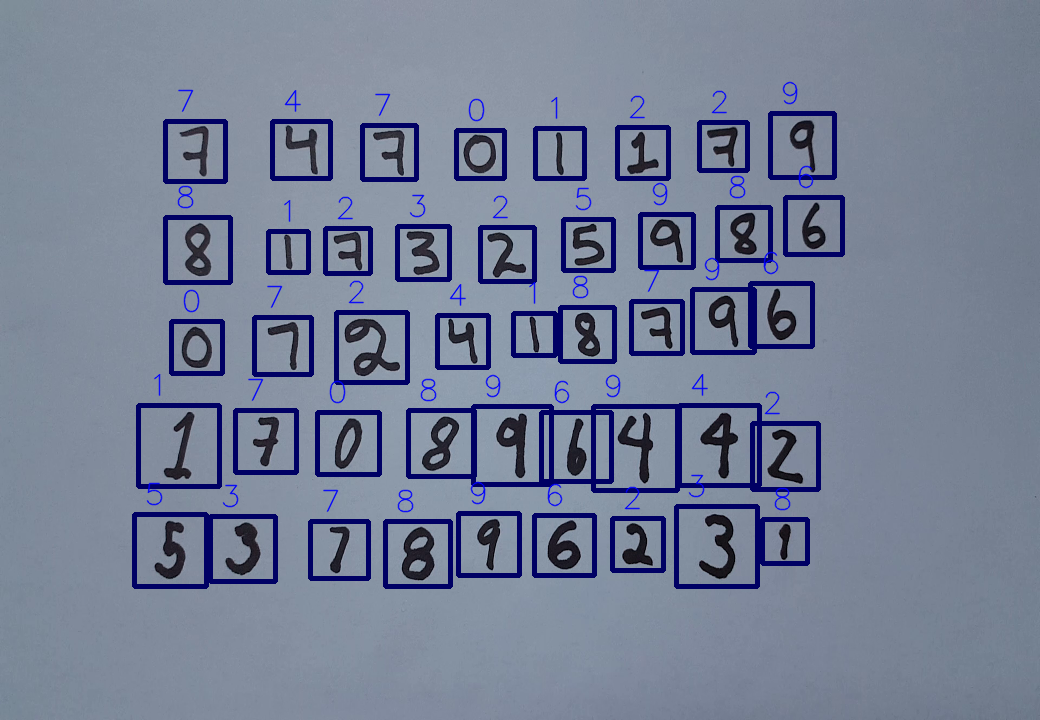 7 4 7 0 1 2 2 9
7 4 7 0 1 1 7 9
8 1 2 3 2 5 9 8 6
8 1 7 3 2 5 9 8 6
0 7 2 4 1 8 7 9 6
0 7 2 4 1 8 7 9 6
1 7 0 8 9 6 9 4 2
1 7 0 8 9 6 4 4 2
5 3 7 8 9 6 2 3 8
5 3 7 8 9 6 2 3 1